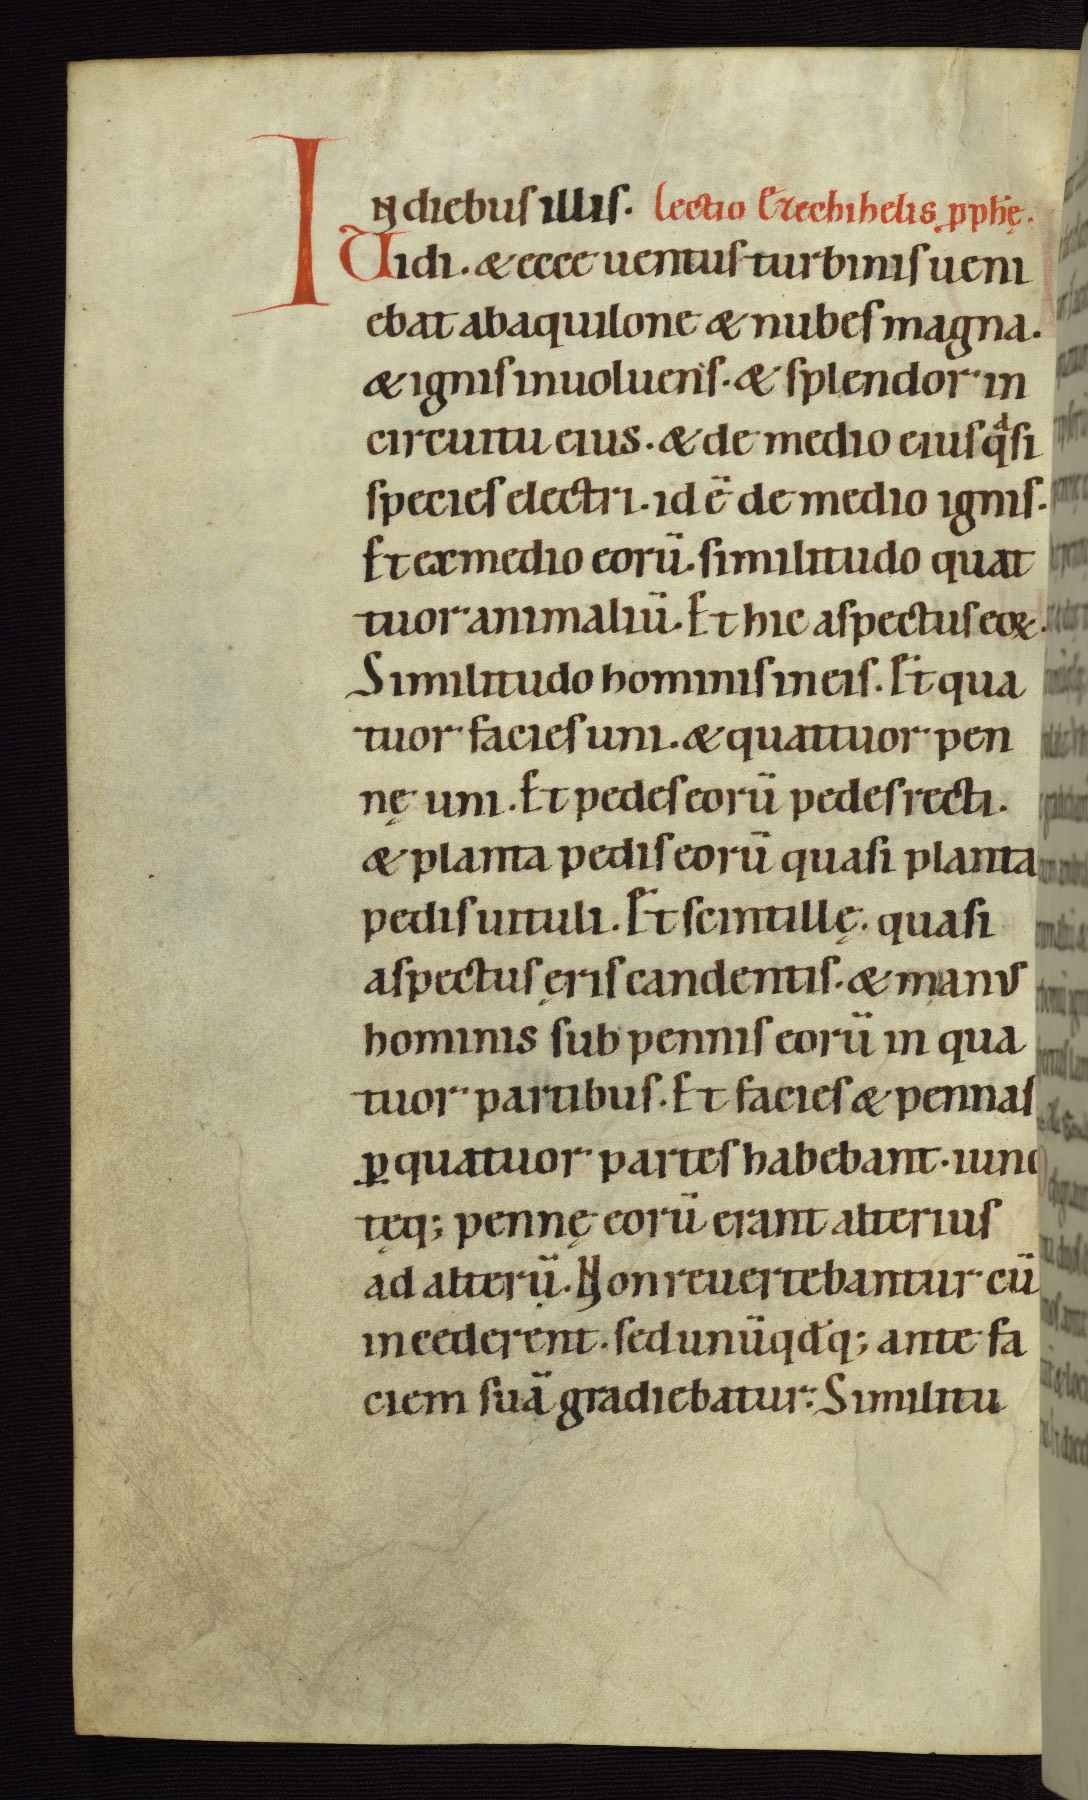 In diebus illis. Lectio Ezechihelis ꝓphę.
Uidi. & ecce uentus turbinis ueni
ebat ab aquilone & nubes magna.
& ignis inuoluens. & splendor in
circuitu eius. & de medio eius qͣsi
species electri. id ē de medio ignis.
Et ex medio eorū. similitudo quat
tuor animaliū. Et hic aspectus eoꝝ.
Similitudo hominis in eis. Et qua
tuor facies uni. & quattuor pen
nę uni. Et pedes eorū pedes recti.
& planta pedis eorū quasi planta
pedis uituli. Et scintillę. quasi
aspectus ęris candentis. & manus
hominis sub pennis eorū in qua
tuor partibus. Et facies & pennas
ꝑ quatuor partes habebant. iunc
tęq; pennę eorū erant alterius
ad alterū. Non reuertebantur cū
incederent. sed unūqdq; ante fa
ciem suā gradiebatur. Similitu